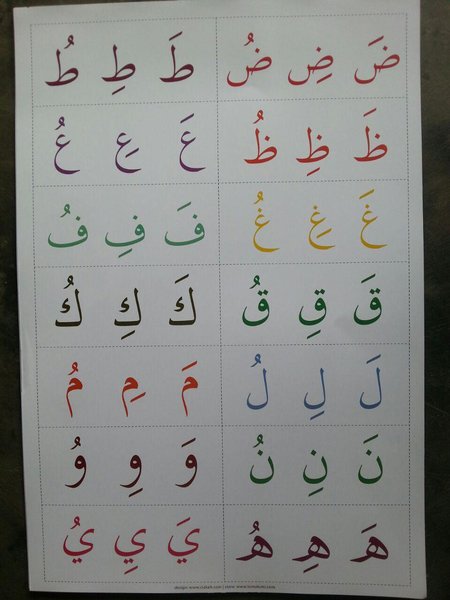 ضَ ضِ ضُ طَ طِ طُ
ظَ ظِ ظُ عَ عِ عُ
غَ غِ غُ فَ فِ فُ
قَ قِ قُ كَ كِ كُ
لَ لِ لُ مَ مِ مُ
نَ نِ نُ وَ وِ وُ
هَ هِ هُ يَ يِ يُ